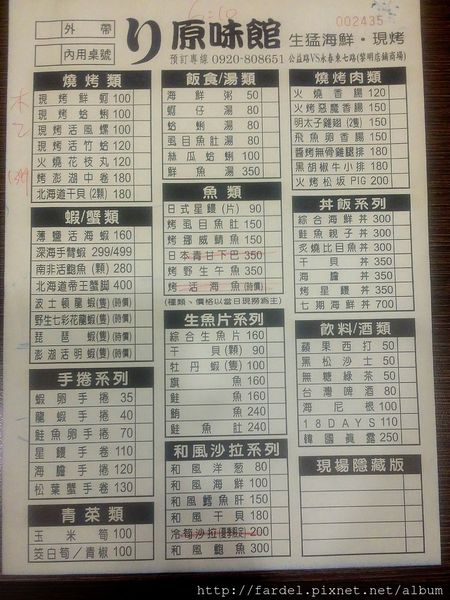 外帶
內用桌號
り原味館
6:10
002435
生猛海鮮・現烤
預訂專線 0920-808651
公益路VS永春東七路(黎明店鋪商場)
燒烤類
現烤鮮蚵 100
現烤蛤蜊 100
現烤活風螺 100
現烤活竹蛤 120
火燒花枝丸 120
烤澎湖中卷 180
北海道干貝(2顆) 180
蝦/蟹類
薄鹽活海蝦 160
深海手臂蝦 299/499
南非活鮑魚(顆) 280
北海道帝王蟹腳 400
波士頓龍蝦(隻)(時價)
野生七彩花龍蝦(隻)(時價)
琵琶蝦(隻)(時價)
澎湖活明蝦(隻)(時價)
手捲系列
蝦卵手捲 35
龍蝦手捲 40
鮭魚卵手捲 70
星鰻手捲 110
海膽手捲 120
松葉蟹手捲 130
青菜類
玉米筍 100
筊白筍/青椒 100
飯食/湯類
海鮮粥 50
蚵仔湯 80
蛤蜊湯 80
虱目魚肚湯 80
絲瓜蛤蜊 100
鮮魚湯 350
魚類
日式星鰻(片) 90
烤虱目魚肚 150
烤挪威鯖魚 150
日本青甘下巴 350
烤野生午魚 350
烤活海魚(時價)
(種類、價格以當日現撈為主)
生魚片系列
綜合生魚片 160
干貝(顆) 90
牡丹蝦(隻) 100
旗魚 160
鮭魚 160
鮪魚 240
鮭魚肚 240
和風沙拉系列
和風洋葱 80
和風海鮮 100
和風鱈魚肝 150
和風干貝 180
冷筍沙拉(夏季限定) 200
和風鮑魚 300
燒烤肉類
火燒香腸 120
火烤惡魔香腸 150
明太子雞翅(2隻) 150
飛魚卵香腸 150
醬烤無骨雞腿排 180
黑胡椒牛小排 180
火烤松坂PIG 200
丼飯系列
綜合海鮮丼 300
鮭魚親子丼 300
炙燒比目魚丼 350
干貝丼 350
海膽丼 350
烤星鰻丼 350
七期海鮮丼 700
飲料/酒類
蘋果西打 50
黑松沙士 50
無糖綠茶 50
台灣啤酒 80
海尼根 100
18DAYS 110
韓國真露 250
現場隱藏版
http://fardel.pixnet.net/album